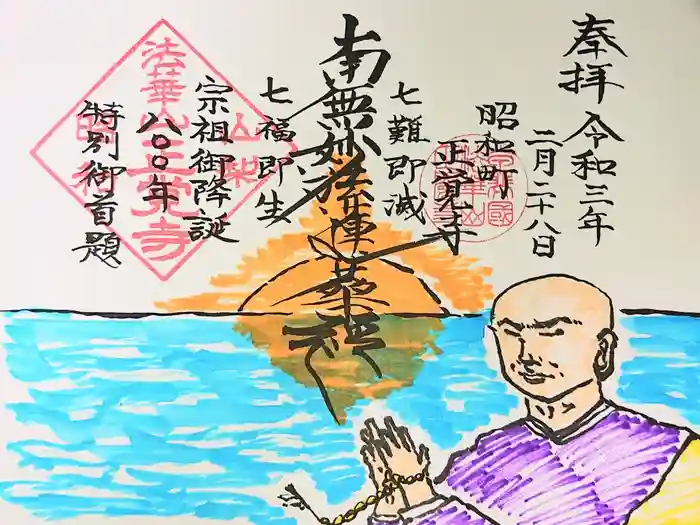 奉拝
令和三年
二月二十八日
昭和町
正覚寺
七難即滅
南無妙法蓮華経
七福即生
宗祖御降誕
八〇〇年
特別御首題
法華山正覚寺
山梨
昭和